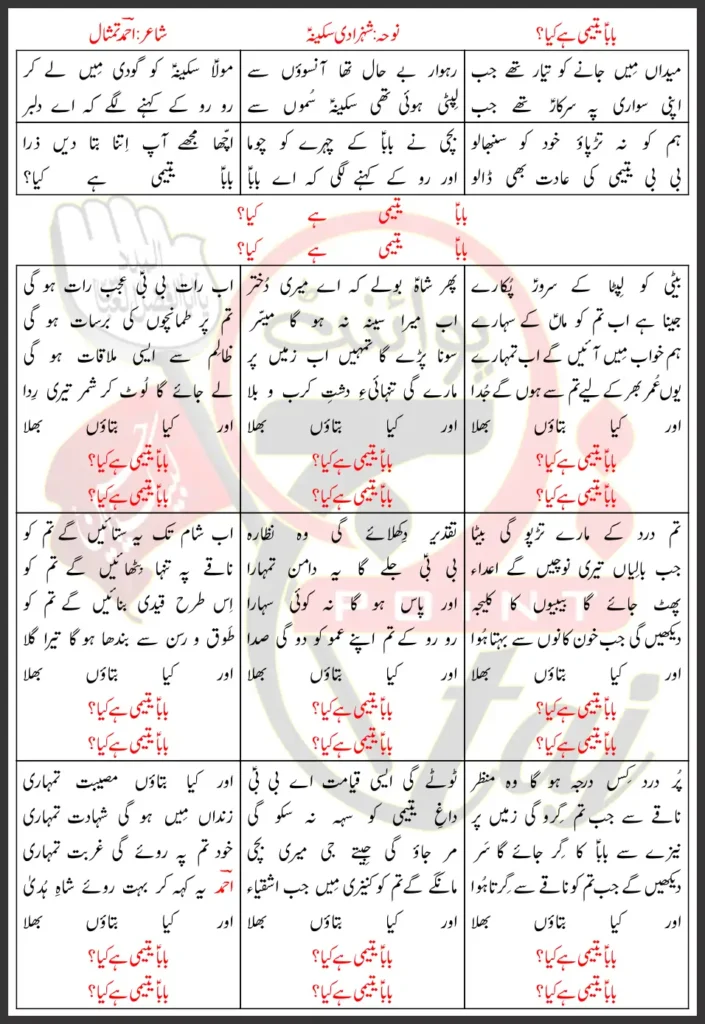 باباؑ یتیمی ہے کیا؟
نوحہ: شہزادی سکینہؑ
شاعر: احمؔد تمثال
میداں مِیں جانے کو تیار تھے جب
اپنی سواری پہ سرکارؑ تھے جب
رہوار بے حال تھا آنسوؤں سے
لپٹی ہوئی تھی سکینہؑ سُموں سے
مولاؑ سکینہؑ کو گودی مِیں لے کر
رو رو کے کہنے لگے کہ اے دلبر
ہم کو نہ تڑپاؤ خود کو سنبھالو
بی بی یتیمی کی عادت بھی ڈالو
بچی نے باباؑ کے چہرے کو چوما
اور رو کے کہنے لگی کہ اے باباؑ
اچّھا مجھے آپ اِتنا بتا دیں ذرا
باباؑ یتیمی ہے کیا؟
باباؑ یتیمی ہے کیا؟
باباؑ یتیمی ہے کیا؟
بیٹی کو لپٹا کے سرورؑ پُکارے
جینا ہے اب تم کو ماںؑ کے سہارے
ہم خواب مِیں آئیں گے اب تمہارے
یوں عُمر بھر کے لیے تم سے ہوں گے جُدا
اور کیا بتاؤں بھلا
باباؑ یتیمی ہے کیا؟
باباؑ یتیمی ہے کیا؟
پھر شاہؑ بولے کہ اے میری دُختر
اب میرا سینہ نہ ہو گا میسّر
سونا پڑے گا تمہیں اب زمیں پر
مارے گی تنہائیءِ دشتِ کرب و بلا
اور کیا بتاؤں بھلا
باباؑ یتیمی ہے کیا؟
باباؑ یتیمی ہے کیا؟
اب رات بی بیؑ عجب رات ہو گی
تم پر طمانچوں کی برسات ہو گی
ظالم سے ایسی ملاقات ہو گی
لے جائے گا لُوٹ کر شمر تیری رِدا
اور کیا بتاؤں بھلا
باباؑ یتیمی ہے کیا؟
باباؑ یتیمی ہے کیا؟
تم درد کے مارے تڑپو گی بیٹا
جب بالیاں تیری نوچیں گے اعداء
پھٹ جائے گا بیبیوں کا کلیجہ
دیکھیں گی جب خون کانوں سے بہتا ہُوا
اور کیا بتاؤں بھلا
باباؑ یتیمی ہے کیا؟
باباؑ یتیمی ہے کیا؟
تقدیر دِکھلائے گی وہ نظارہ
بی بیؑ جلے گا یہ دامن تمہارا
اور پاس ہو گا نہ کوئی سہارا
رو رو کے تم اپنے عمو کو دو گی صدا
اور کیا بتاؤں بھلا
باباؑ یتیمی ہے کیا؟
باباؑ یتیمی ہے کیا؟
اب شام تک یہ ستائیں گے تم کو
ناقے پہ تنہا بِٹھائیں گے تم کو
اِس طرح قیدی بنائیں گے تم کو
طَوق و رسن سے بندھا ہو گا تیرا گلا
اور کیا بتاؤں بھلا
باباؑ یتیمی ہے کیا؟
باباؑ یتیمی ہے کیا؟
پُر درد کِس درجہ ہو گا وہ منظر
ناقے سے جب تم گِرو گی زمیں پر
نیزے سے باباؑ کا گِر جائے گا سَر
دیکھیں گے جب تم کو ناقے سے گِرتا ہُوا
اور کیا بتاؤں بھلا
باباؑ یتیمی ہے کیا؟
باباؑ یتیمی ہے کیا؟
ٹوٹے گی ایسی قیامت اے بی بیؑ
داغِ یتیمی کو سہہ نہ سکو گی
مر جاؤ گی جیتے جی میری بچی
مانگے گے تم کو کنیزی مِیں جب اشقیاء
اور کیا بتاؤں بھلا
باباؑ یتیمی ہے کیا؟
باباؑ یتیمی ہے کیا؟
اور کیا بتاؤں مصیبت تمہاری
زنداں مِیں ہو گی شہادت تمہاری
خود تم پہ روئے گی غربت تمہاری
احمؔد یہ کہہ کر بہت روئے شاہِ ہُدیٰ
اور کیا بتاؤں بھلا
باباؑ یتیمی ہے کیا؟
باباؑ یتیمی ہے کیا؟
پوائنٹ
POINT
taj